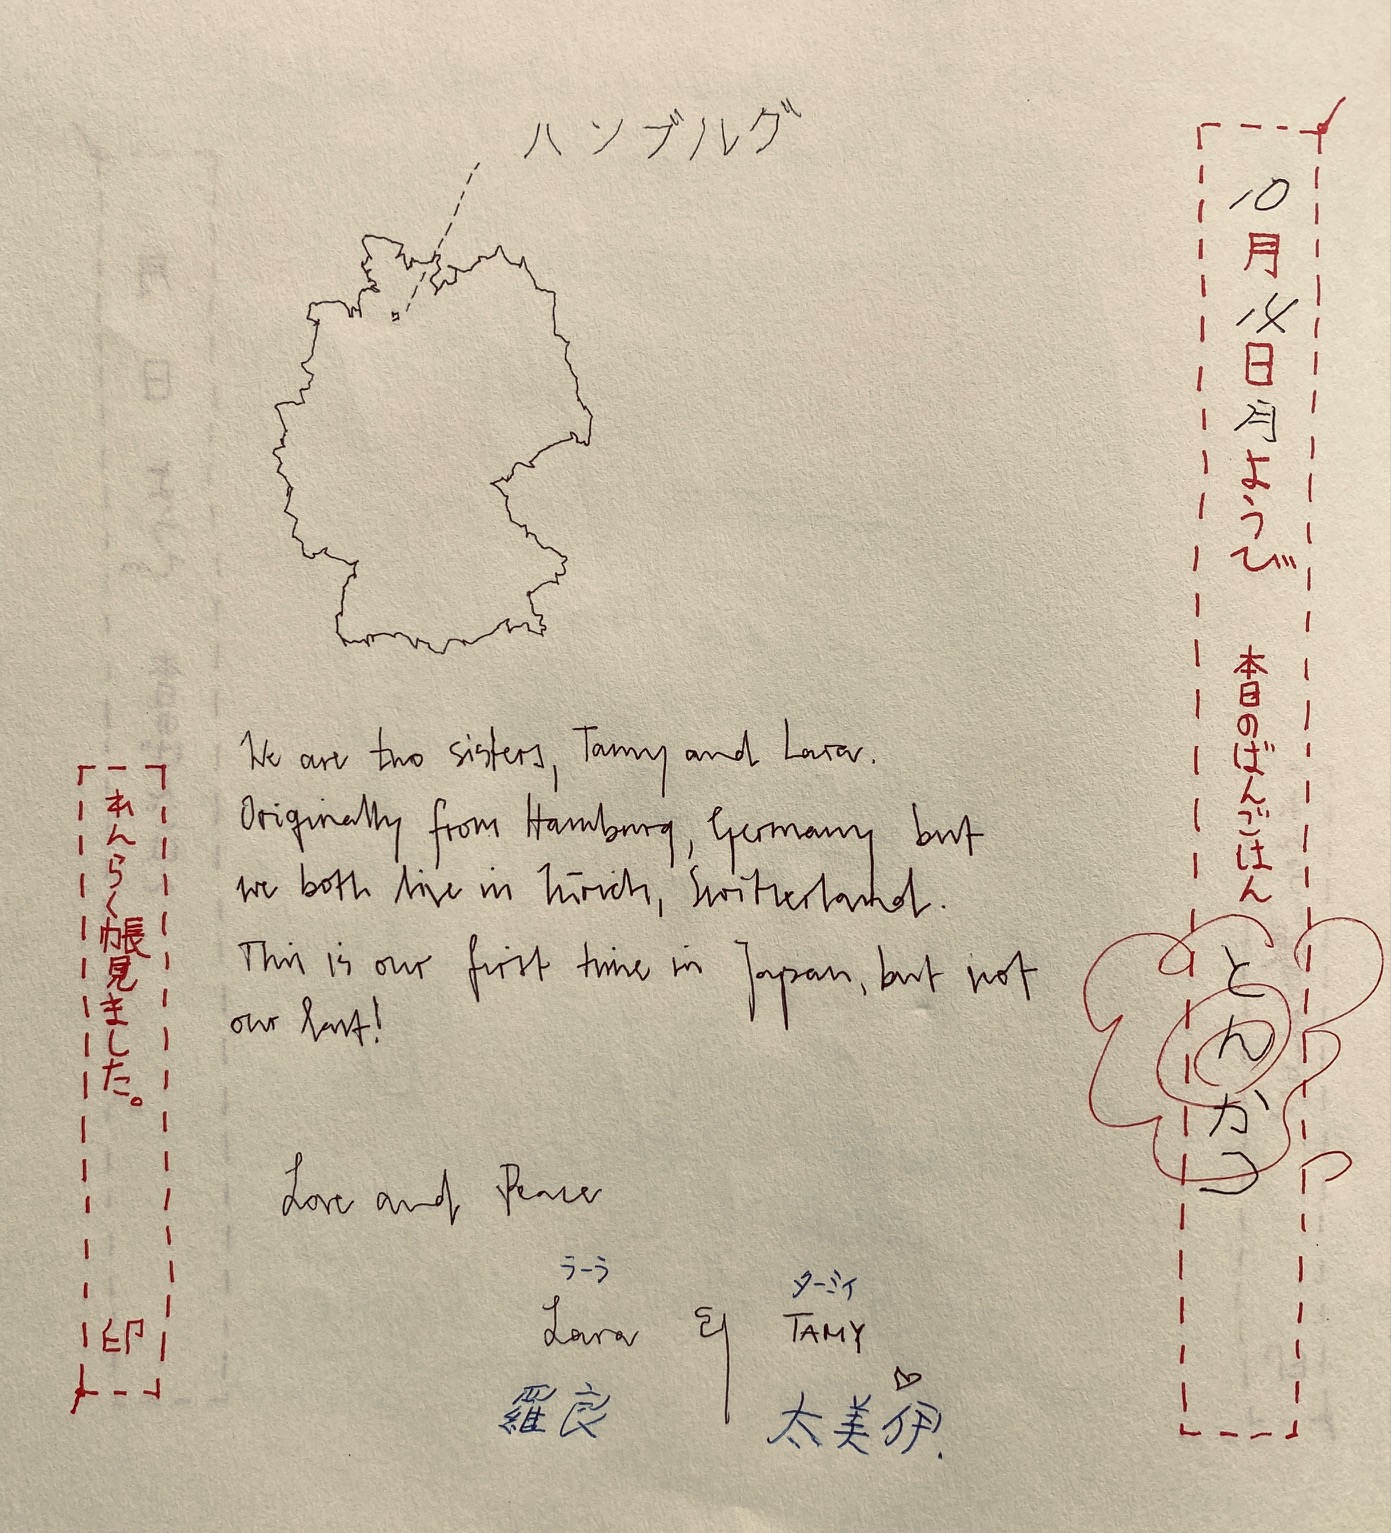 ハンブルグ
10月14日月ようび 本日のばんごはん とんかつ
We are two sisters, Tamy and Lara.
Originally from Hamburg, Germany but
we both live in Zürich, Switzerland.
This is our first time in Japan, but not
our last!
Love and Peace
ラーラ
ターミィ
Lara & TAMY
羅良
太美伊.
れんらく帳見ました。 印